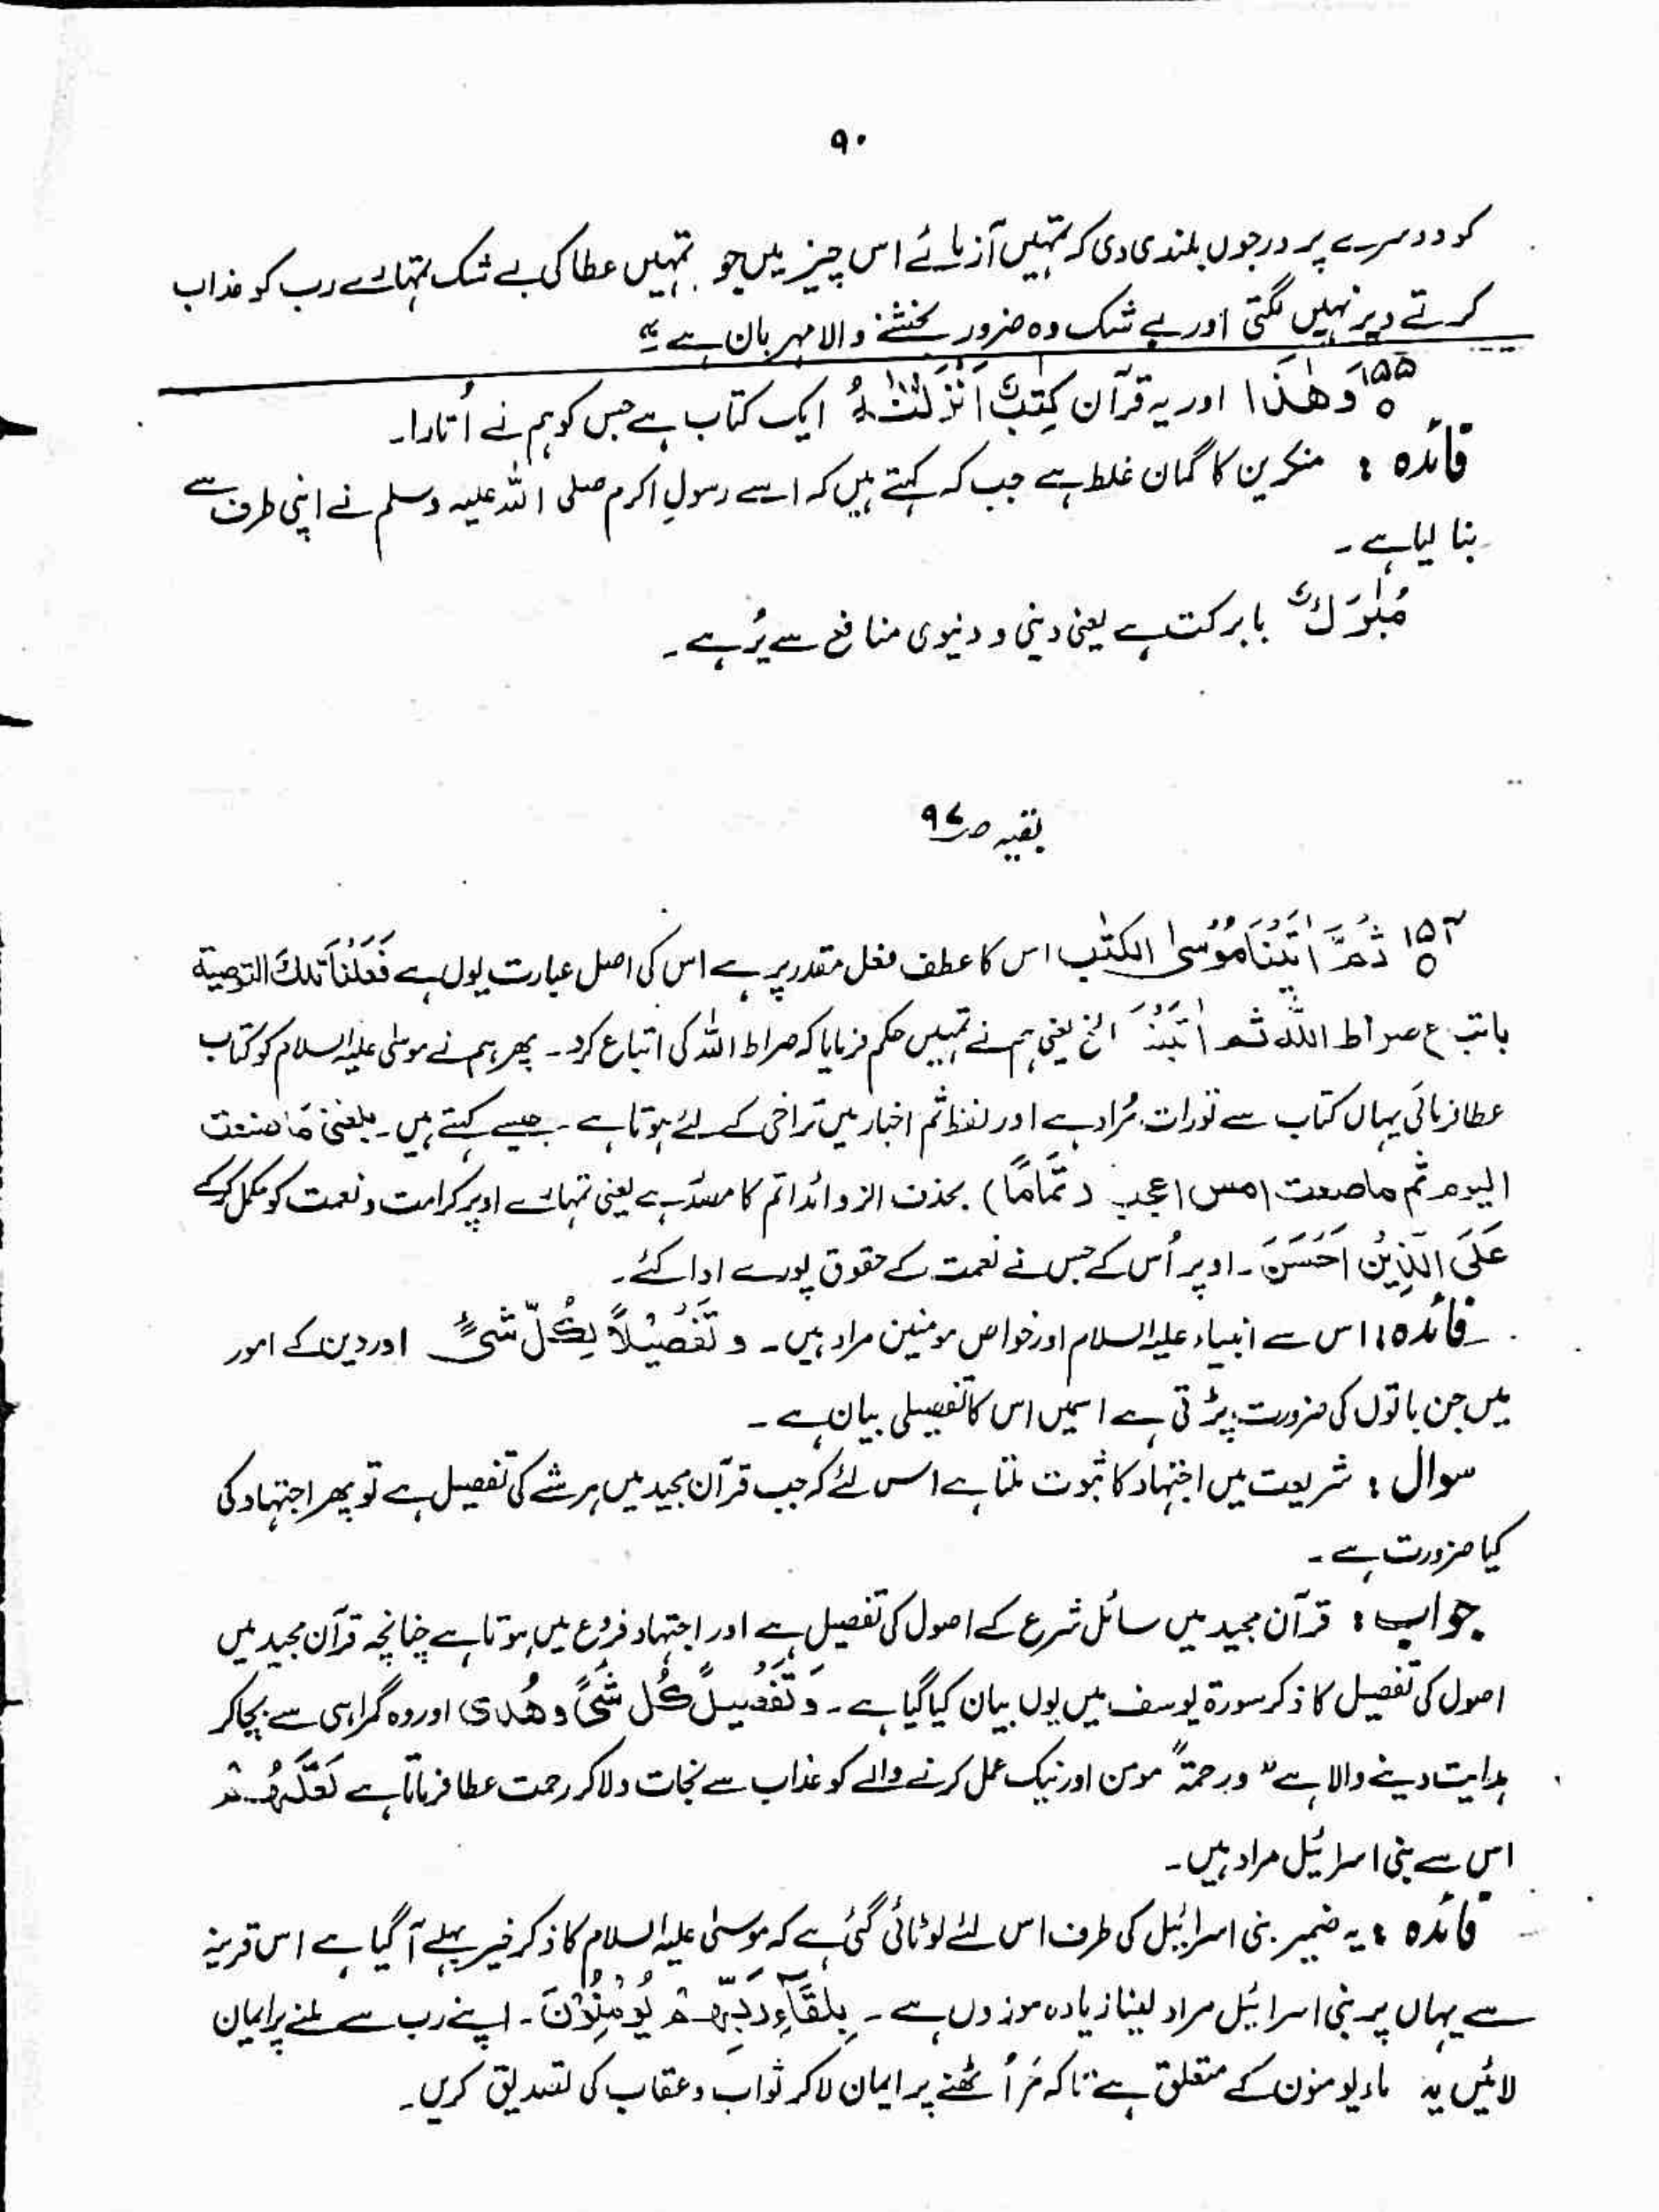 ۹۰
کو دوسرے پر درجوں بلندی دی کہ تمہیں آزمائے اس چیز میں جو تمہیں عطا کی بے شک تمہارے رب کو عذاب
کرتے دیر نہیں لگتی اور بے شک وہ ضرور بخشنے والا مہربان ہے
۱۵۵ وَهٰذَا اور یہ قرآن كِتٰبٌ اَنْزَلْنٰهُ ایک کتاب ہے جس کو ہم نے اُتارا۔
فائدہ : منکرین کا گمان غلط ہے جب کہ کہتے ہیں کہ اسے رسولِ اکرم صلی اللہ علیہ وسلم نے اپنی طرف سے
بنا لیا ہے ۔
مُبٰرَكٌ بابرکت ہے یعنی دینی و دنیوی منافع سے پُر ہے ۔
بقیہ ص ۹۷
۱۵۴ ثُمَّ اٰتَيْنَا مُوْسَى الكتٰب اس کا عطف فعل مقدر پر ہے اس کی اصل عبارت یوں ہے فَعَلْنَا تلكَ التوصية
باتباع صراط الله ثم اٰتَيْنَا الخ یعنی ہم نے تمہیں حکم فرمایا کہ صراط اللہ کی اتباع کرو ۔ پھر ہم نے موسٰی علیہ السلام کو کتاب
عطا فرمائی یہاں کتاب سے تورات مُراد ہے اور لفظ ثم اخبار میں تراخی کے لئے ہوتا ہے ۔ جیسے کہتے ہیں ۔ بلغنی مَا صنعت
الیوم ثم ما صنعت امس اعجب (تَمَامًا) بحذف الزوائد اتم کا مصدر ہے یعنی تمہارے اوپر کرامت و نعمت کو مکمل کر کے
عَلَى الَّذِيْنُ اَحْسَنَ ۔ اوپر اُس کے جس نے نعمت کے حقوق پورے ادا کئے ۔
فائدہ : اس سے انبیاء علیہ السلام اور خواص مومنین مراد ہیں ۔ و تَفْصِيْلًا لِكُلِّ شَيْءٍ اور دین کے امور
میں جن باتوں کی ضرورت پڑتی ہے اسمیں اس کا تفصیلی بیان ہے ۔
سوال : شریعت میں اجتہاد کا ثبوت ملتا ہے اس لئے کہ جب قرآن مجید میں ہر شے کی تفصیل ہے تو پھر اجتہاد کی
کیا ضرورت ہے ۔
جواب : قرآن مجید میں سائل شرع کے اصول کی تفصیل ہے اور اجتہاد فروع میں ہوتا ہے چنانچہ قرآن مجید میں
اصول کی تفصیل کا ذکر سورۃ یوسف میں یوں بیان کیا گیا ہے ۔ وَ تَفْصِيلَ كُل شَيءٍ و هُدى اور وہ گمراہی سے بچا کر
ہدایت دینے والا ہے " و رحمۃً مومن اور نیک عمل کرنے والے کو عذاب سے نجات دلا کر رحمت عطا فرماتا ہے لَعَلَّهُمْ
اس سے بنی اسرائیل مراد ہیں ۔
فائدہ : یہ ضمیر بنی اسرائیل کی طرف اس لئے لوٹائی گئی ہے کہ موسٰی علیہ السلام کا ذکر خیر پہلے آ گیا ہے اس قرینہ
سے یہاں پر بنی اسرائیل مراد لینا زیادہ موزوں ہے ۔ بِلِقَآءِ رَبِّهِمْ يُؤْمِنُوْنَ ۔ اپنے رب سے ملنے پر ایمان
لائیں یہ باء یومنون کے متعلق ہے تاکہ مَر اُٹھنے پر ایمان لا کر ثواب و عقاب کی تصدیق کریں ۔